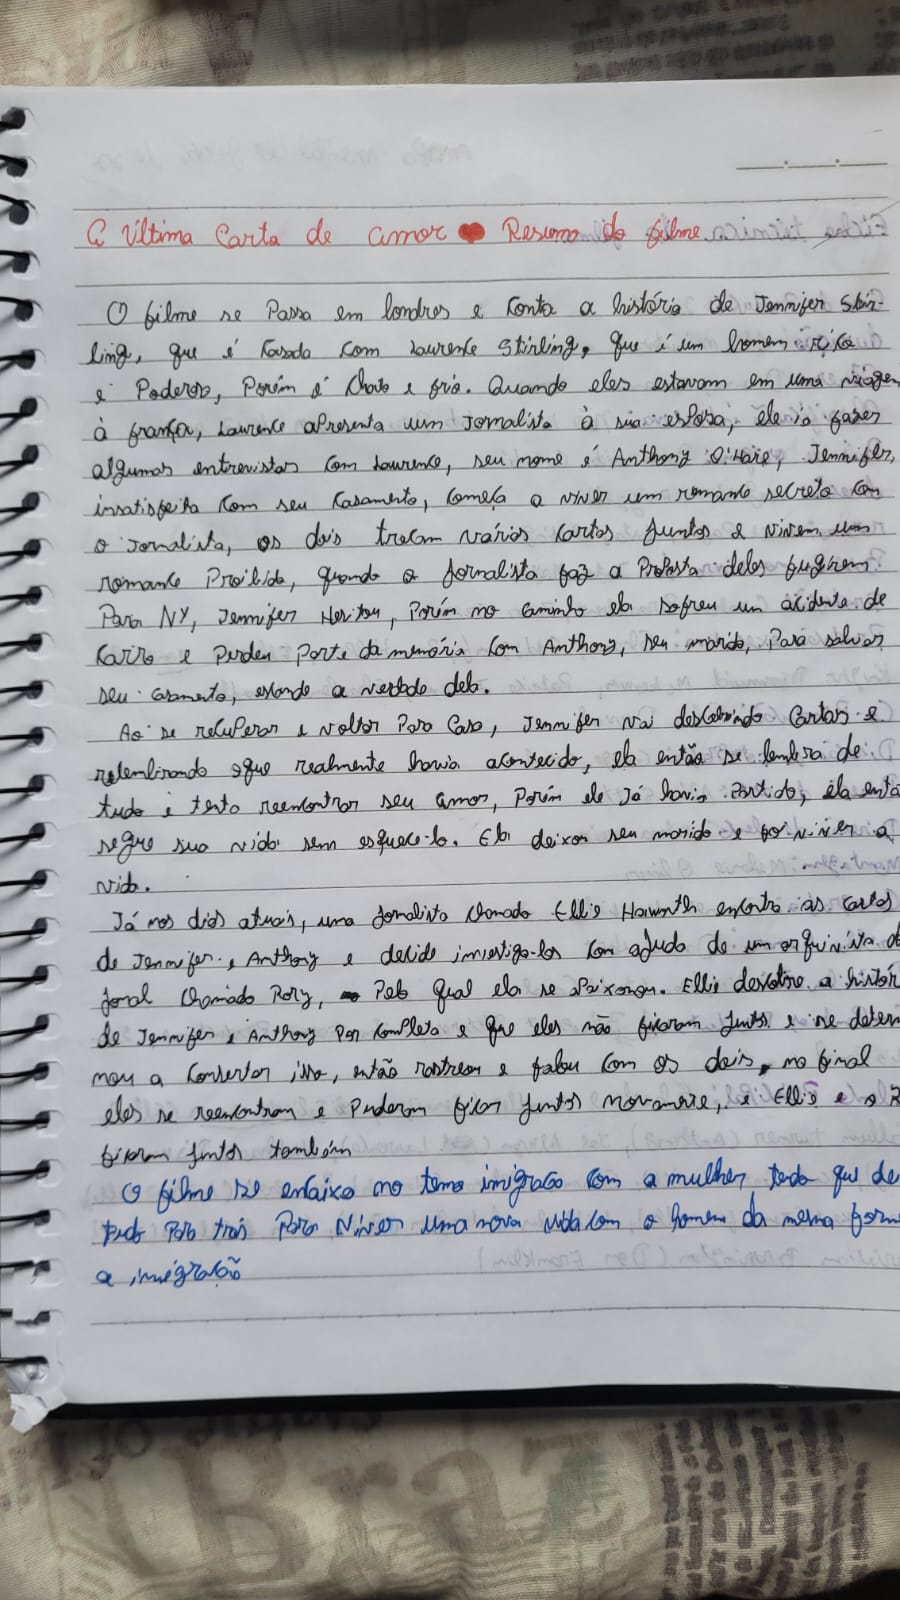 A Última Carta de amor ❤ Resumo do filme
O filme se Passa em londres e Conta a história de Jennifer Stir-
ling, que é Casada Com Laurence Stirling, que é um homem rico
e Poderoso, Porém é Chato e frio. Quando eles estavam em uma viagem
à frança, Laurence apresenta um Jornalista à sua esposa, ele ia fazer
algumas entrevistas com Laurence, seu nome é Anthony O'Hare, Jennifer,
insatisfeita com seu Casamento, começa a viver um romance secreto com
o Jornalista, os dois trocam várias Cartas Juntos e vivem um
romance Proibido, quando o Jornalista faz a Proposta deles fugirem
Para NY, Jennifer Hesitou, Porém no caminho ela sofreu um acidente de
Carro e Perdeu Parte da memória Com Anthony, seu marido, Para salvar
seu casamento, esconde a verdade dela.
Ao se recuperar e voltar Para Casa, Jennifer vai descobrindo Cartas e
relembrando oque realmente havia acontecido, ela então se lembra de
tudo e tenta reencontrar seu amor, Porém ele Já havia Partido, ela entã
segue sua vida sem esquece-lo. Ela deixou seu marido e foi viver a
vida.
Já nos dias atuais, uma Jornalista Chamada Ellie Haworth encontra as cartas
de Jennifer e Anthony e decide investiga-los Com ajuda de um arquivista d
Joral Chamado Rory, Pelo qual ela se Apaixonou. Ellie descobre a histór
de Jennifer e Anthony Por completa e que eles não ficaram Juntos e se determ
nou a Consertar isso, então rastreou e falou com os dois, no final
eles se reencontram e Puderam ficar Juntos novamente, e Ellie e o R
ficaram Juntos também
O filme se encaixa no tema imigração Com a mulher tendo que de
tudo Para trás Para Viver uma nova vida com o homem da mesma form
a imigração